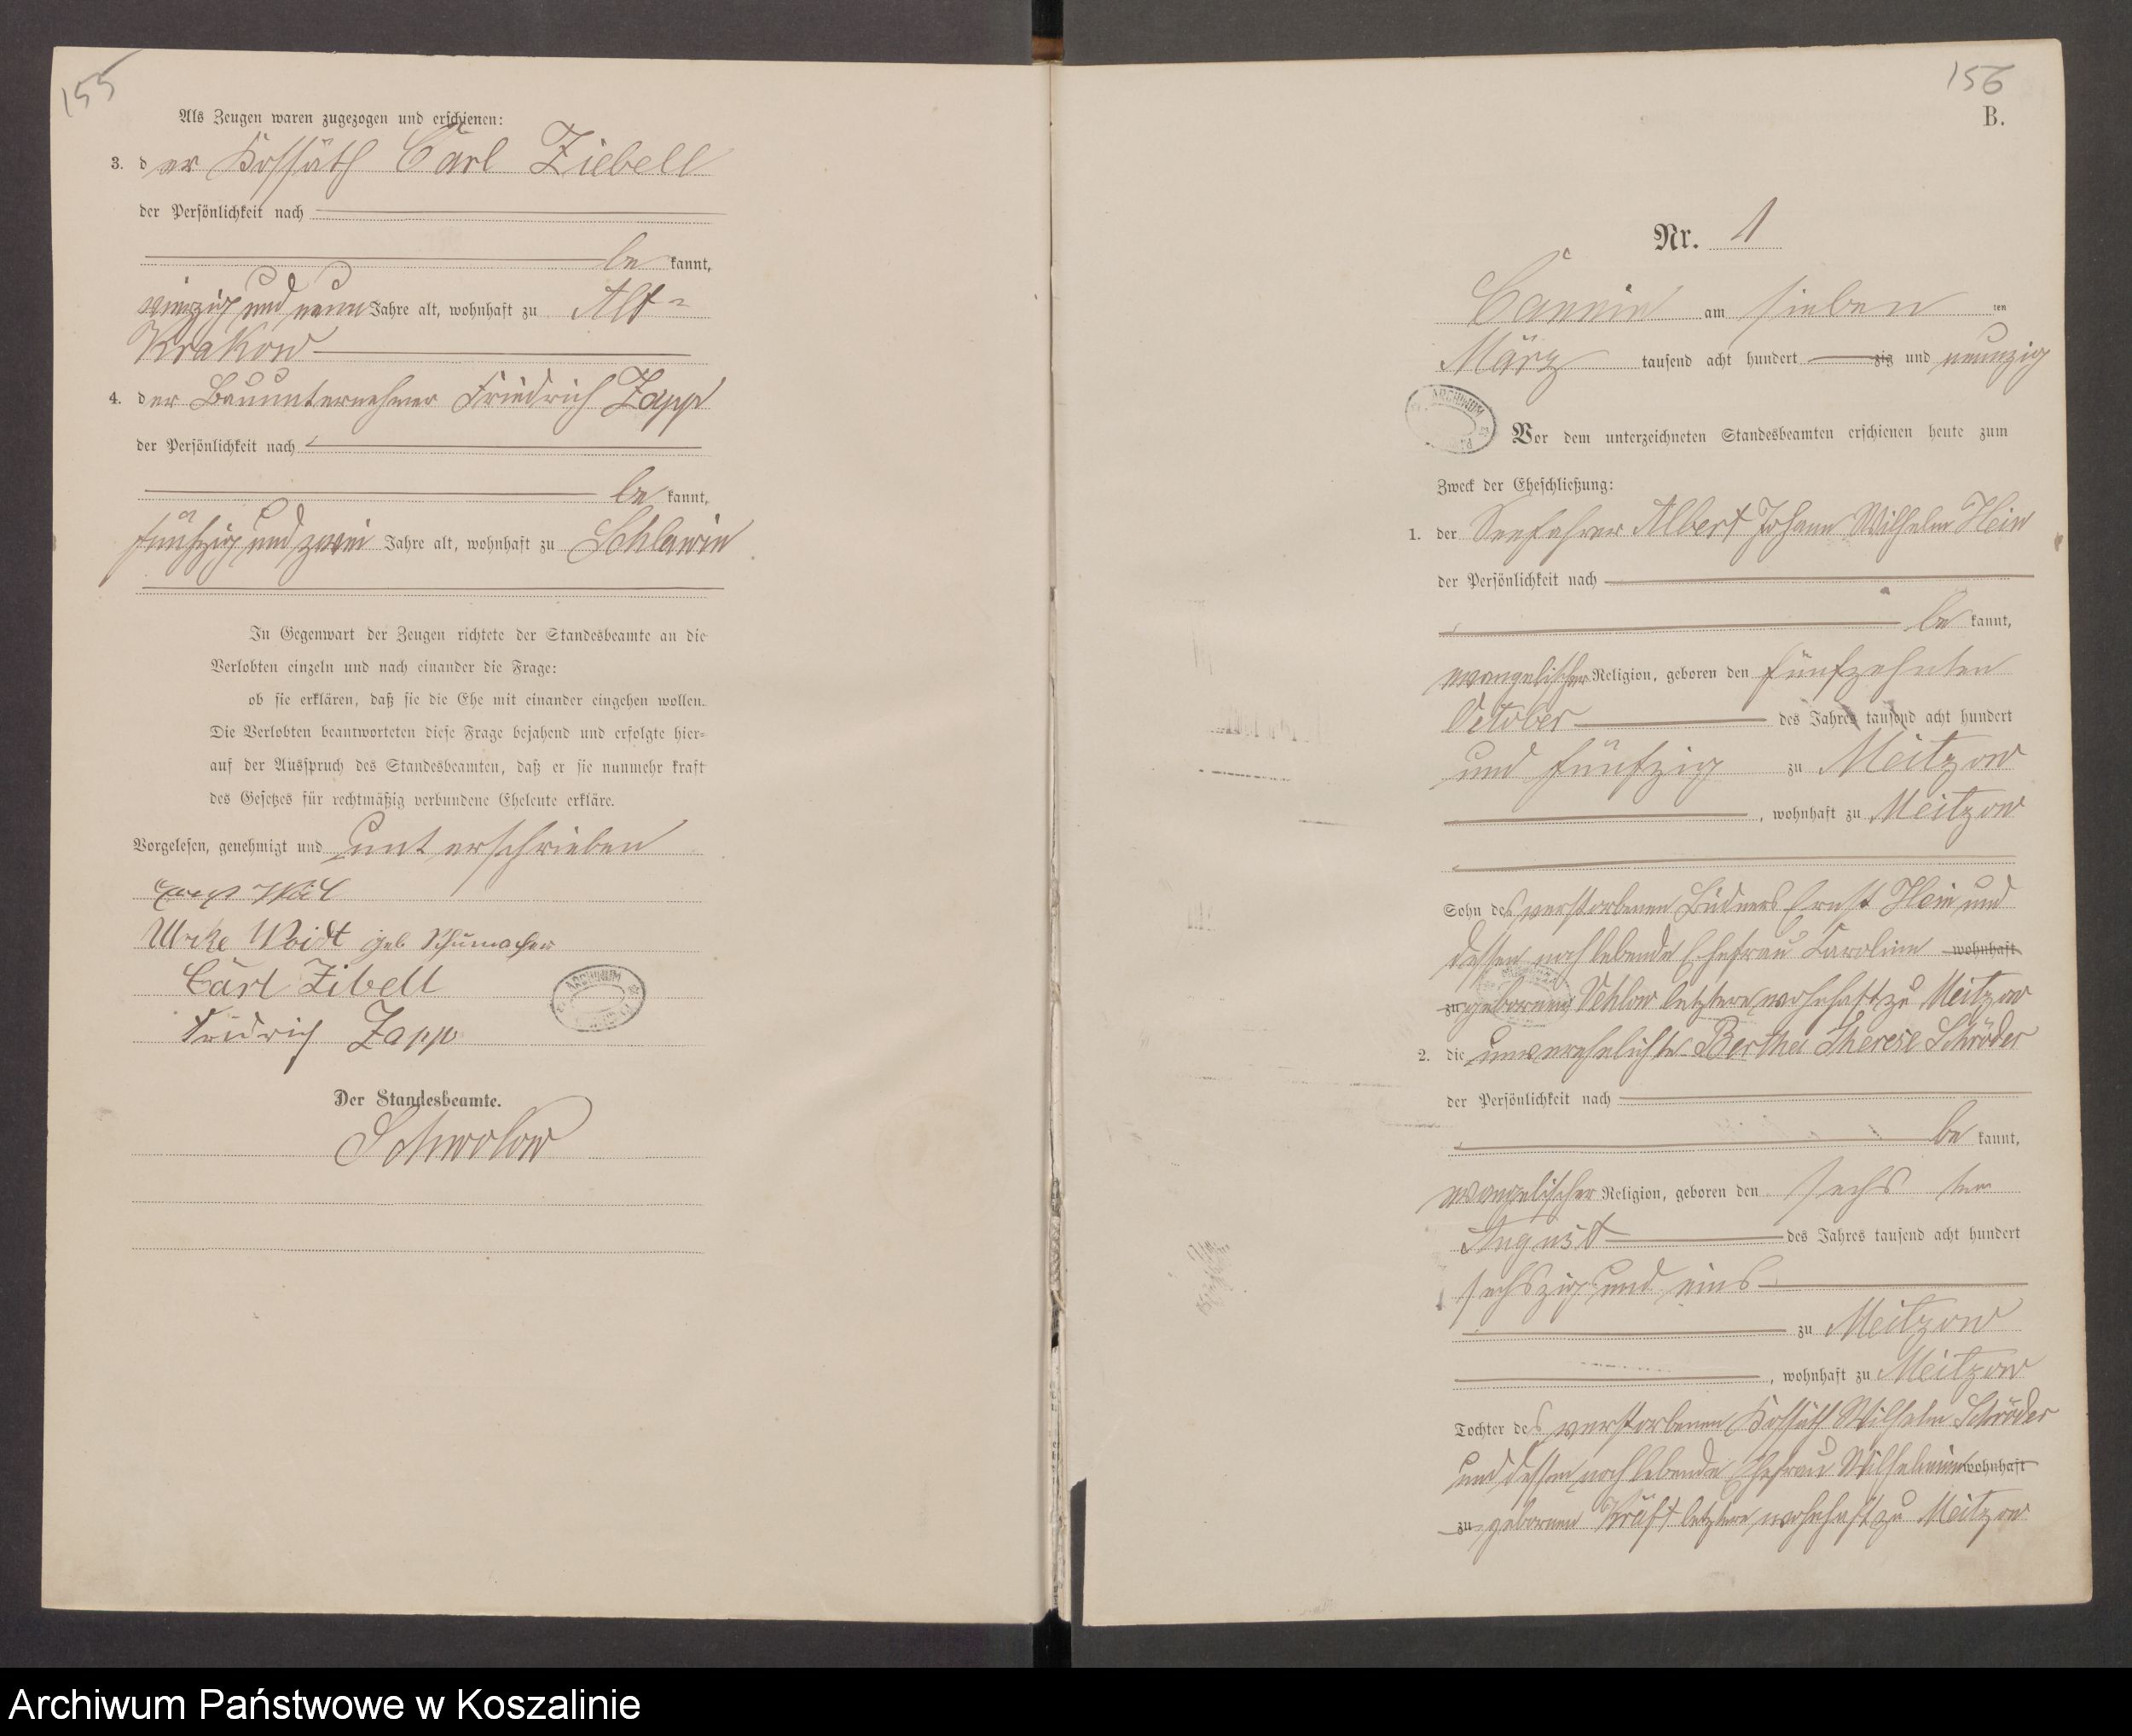 155
Als Zeugen waren zugezogen und erschienen:
3. der Kossäth Carl Ziebell
der Persönlichkeit nach
be kannt,
vierzig und neun Jahre alt, wohnhaft zu Alt-
Krakow
4. der Bauunternehmer Friedrich Zapp
der Persönlichkeit nach
be kannt,
fünfzig und zwei Jahre alt, wohnhaft zu Schlawin
In Gegenwart der Zeugen richtete der Standesbeamte an die
Verlobten einzeln und nach einander die Frage:
ob sie erklären, daß sie die Ehe mit einander eingehen wollen.
Die Verlobten beantworteten diese Frage bejahend und erfolgte hier-
auf der Ausspruch des Standesbeamten, daß er sie nunmehr kraft
des Gesetzes für rechtmäßig verbundene Eheleute erkläre.
Vorgelesen, genehmigt und unterschrieben
Voidt geb. Schumacher
Carl Zibell
Fridrich Zapp
Der Standesbeamte.
Schwolow
156
B.
Nr. 1
Cannin am sieben ten
März tausend acht hundert zig und neunzig
ARCHIWUM
Vor dem unterzeichneten Standesbeamten erschienen heute zum
Zweck der Eheschließung:
1. der Seefahrer Albert Johann Wilhelm Hein
der Persönlichkeit nach
be kannt,
evangelischer Religion, geboren den fünfzehnten
October des Jahres tausend acht hundert
und fünfzig zu Meitzow
, wohnhaft zu Meitzow
Sohn des verstorbenen Büdners Ernst Hein und
dessen noch lebende Ehefrau Caroline wohnhaft
zu gebornen letztere wohnhaft zu Meitzow
2. die unverehelichte Bertha Therese Schröder
der Persönlichkeit nach
be kannt,
evangelischer Religion, geboren den sechs ten
August des Jahres tausend acht hundert
sechszig und eins
zu Meitzow
, wohnhaft zu Meitzow
Tochter des verstorbenen Kossäth Wilhelm Schröder
und dessen noch lebende Ehefrau Wilhelmine wohnhaft
zu gebornen letztere wohnhaft zu Meitzow
Archiwum Państwowe w Koszalinie